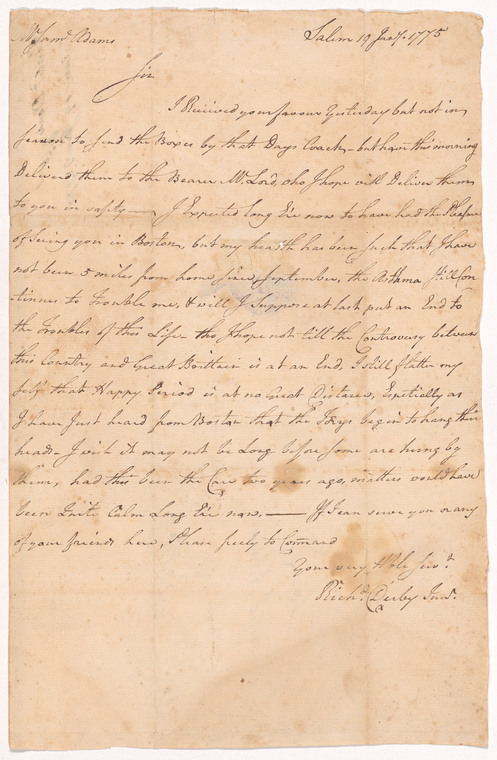 Mr Saml Adams
Salem 19 Jany. 1775
Sir
I Received your favour Yesterday but not in
season to send the Boxes by that Days Coach - but have this morning
Deliverd them to the Bearer Mr. Lord, who I hope will Deliver them
to you in safty — I Expected long Ere now to have had the Pleasure
of seeing you in Boston, but my health has been such that I have
not been 5 miles from home since September, the Asthma still Con
-tinues to Trouble me, & will I suppose at last put an End to
the Troubles of this Life tho I hope not till the Controversy between
this Country and Great Brittain is at an End, I still flatter my
self that Happy Period is at no Great Distance, Espetially as
I have Just heard from Boston that the Torys begin to hang their
heads - I wish it may not be Long before some are hung by
them, had this been the Case two years ago, matters would have
been Quite Calm Long Ere now. — If I can serve you or any
of your friends here, Please freely to Command
Your very Hble Servt.
Richd. Derby Junr.